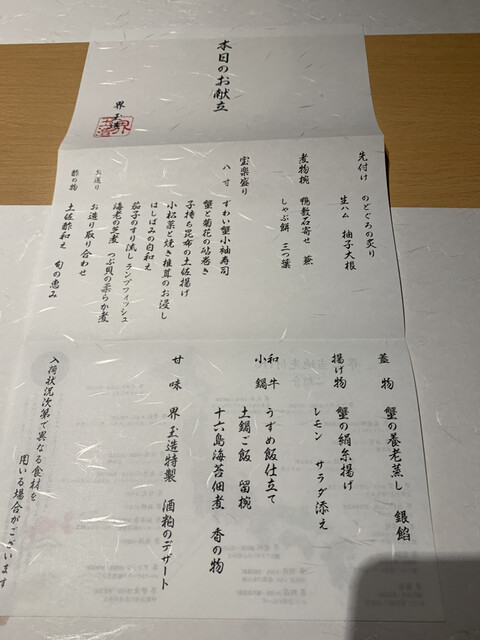 本日のお献立
界 玉造
先付け のどぐろの炙り
生ハム 柚子大根
煮物椀 鴨数石寄せ 蕪
しゃぶ餅 三つ葉
宝楽盛り
八寸 ずわい蟹小袖寿司
蟹と菊花の砧巻き
子持ち昆布の土佐揚げ
小松菜と焼き椎茸のお浸し
はしばみの白和え
茄子のすり流し ランプフィッシュ
海老の芝煮 つぶ貝の柔らか煮
お造り お造り取り合わせ
酢の物 土佐酢和え 旬の恵み
蓋物 蟹の養老蒸し 銀餡
揚げ物 蟹の絹糸揚げ
レモン サラダ添え
和牛小鍋 うずめ飯仕立て
土鍋ご飯 留椀
十六島海苔佃煮 香の物
甘味 界 玉造特製 酒粕のデザート
入荷状況次第で異なる食材を
用いる場合がございます